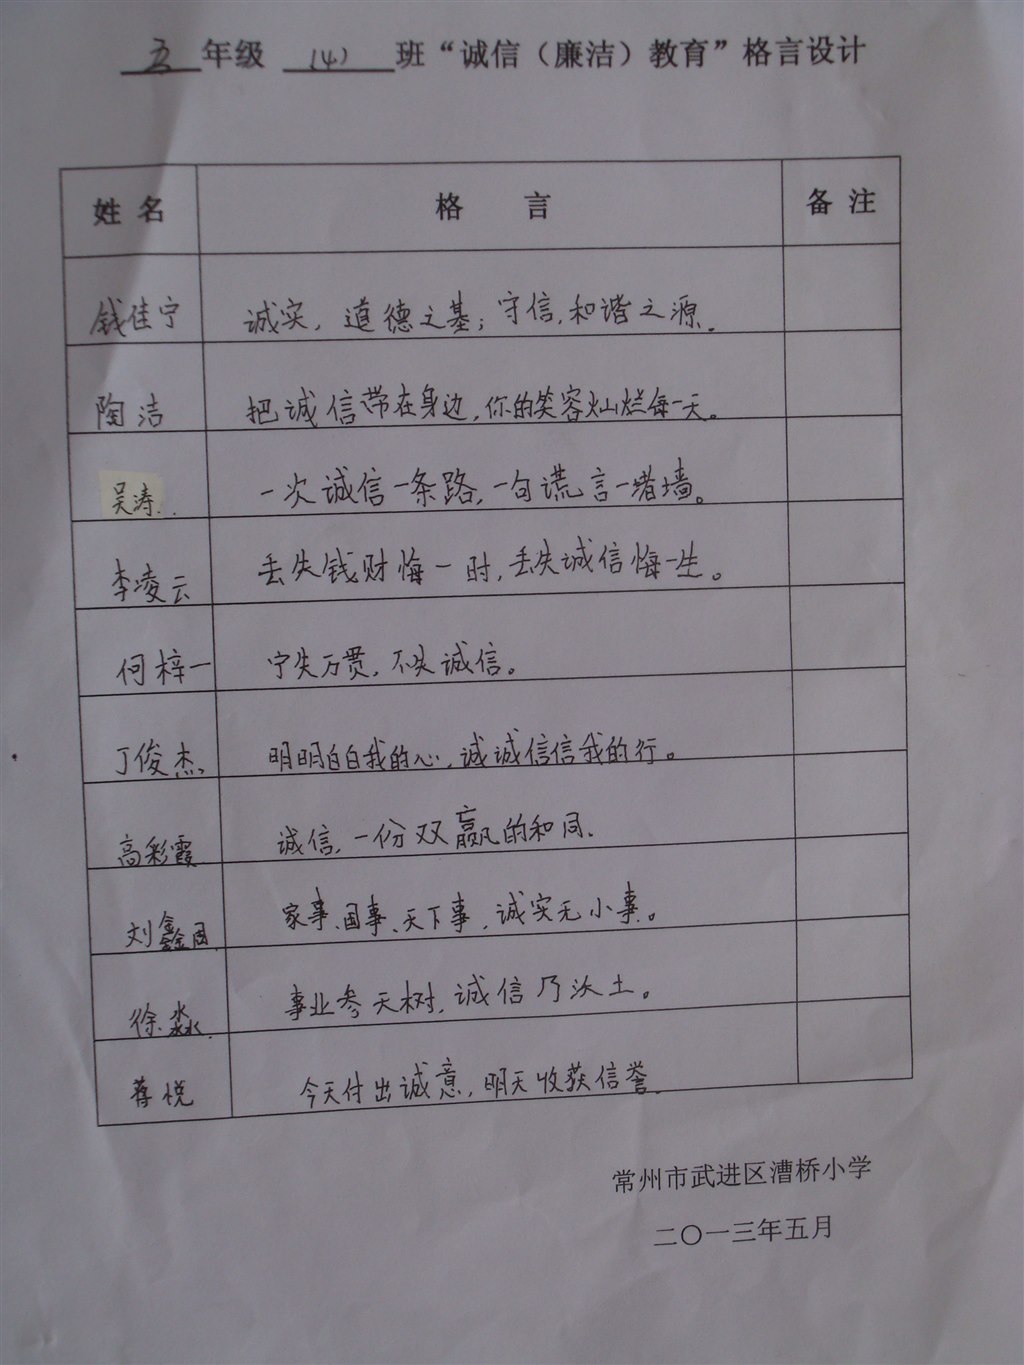 五 年级 (4) 班“诚信（廉洁）教育”格言设计
姓 名 格 言 备 注
钱佳宁 诚实，道德之基；守信，和谐之源.
陶洁 把诚信带在身边，你的笑容灿烂每一天。
吴涛 一次诚信一条路，一句谎言一堵墙。
李凌云 丢失钱财悔一时，丢失诚信悔一生。
何梓一 宁失万贯，不失诚信。
丁俊杰 明明白白我的心，诚诚信信我的行。
高彩霞 诚信，一份双赢的和同.
刘鑫 家事、国事、天下事，诚实无小事。
徐淼 事业参天树，诚信乃沃土。
蒋悦 今天付出诚意，明天收获信誉.
常州市武进区漕桥小学
二〇一三年五月